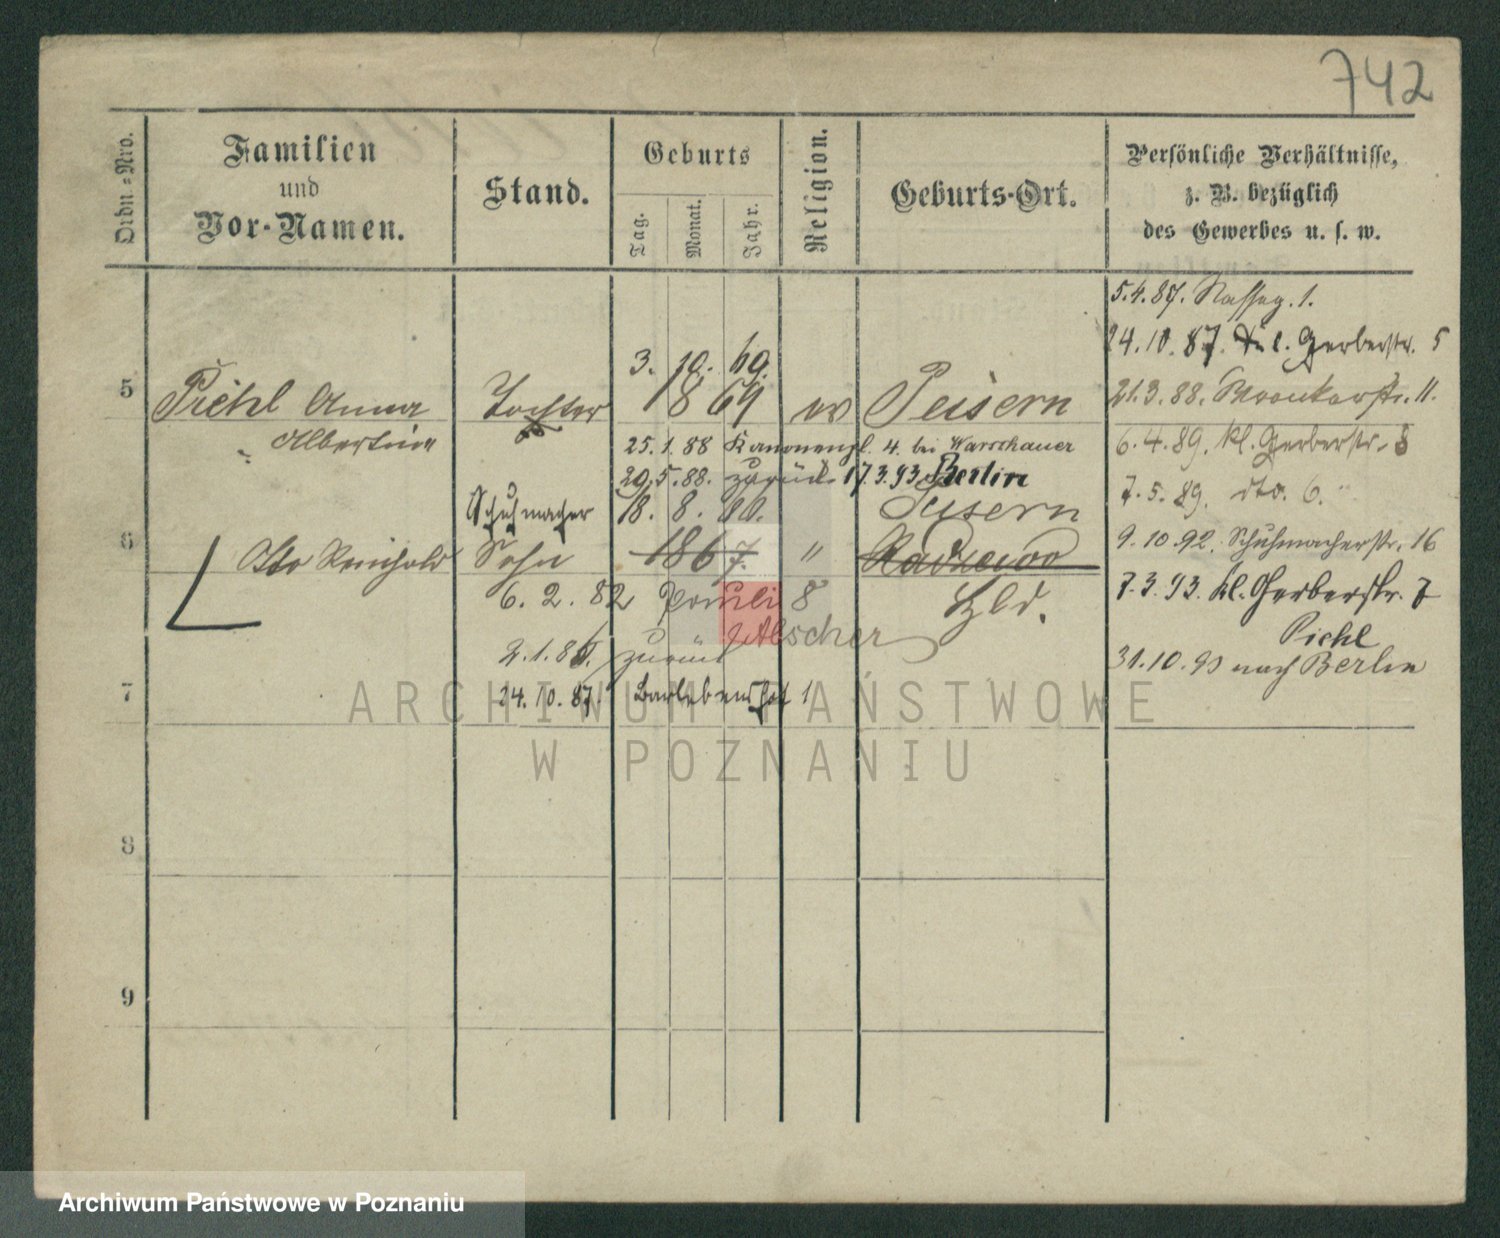 742
Ordn.=Nro.
Familien
und
Vor-Namen.
Stand.
Geburts
Tag.
Monat.
Jahr.
Religion.
Geburts-Ort.
Persönliche Verhältnisse,
z. B. bezüglich
des Gewerbes u. s. w.
5.4.87. 1.
24.10.87. Gerberstr. 5
3. 10. 69.
5 Piehl Anna Tochter 1869 ev Peisern
21.3.88. Wronkerstr. 11.
Albertine
25.1.88 Kanonenpl. 4. bei Warschauer
6.4.89. kl. Gerberstr. 8
20.5.88. zurück 17.3.93 Berlin
7.5.89. dto. 6.
Schuhmacher 18. 8. Peisern
6 Otto Reinhold Sohn 1867. "
9.10.92. Schuhmacherstr. 16
6. 2. 82 8
7.3.93. kl. Gerberstr. 7
Piehl
2.1.86. zurück
31.10.93 nach Berlin
7
24.10.87. 1
ARCHIWUM PAŃSTWOWE
W POZNANIU
8
9
Archiwum Państwowe w Poznaniu